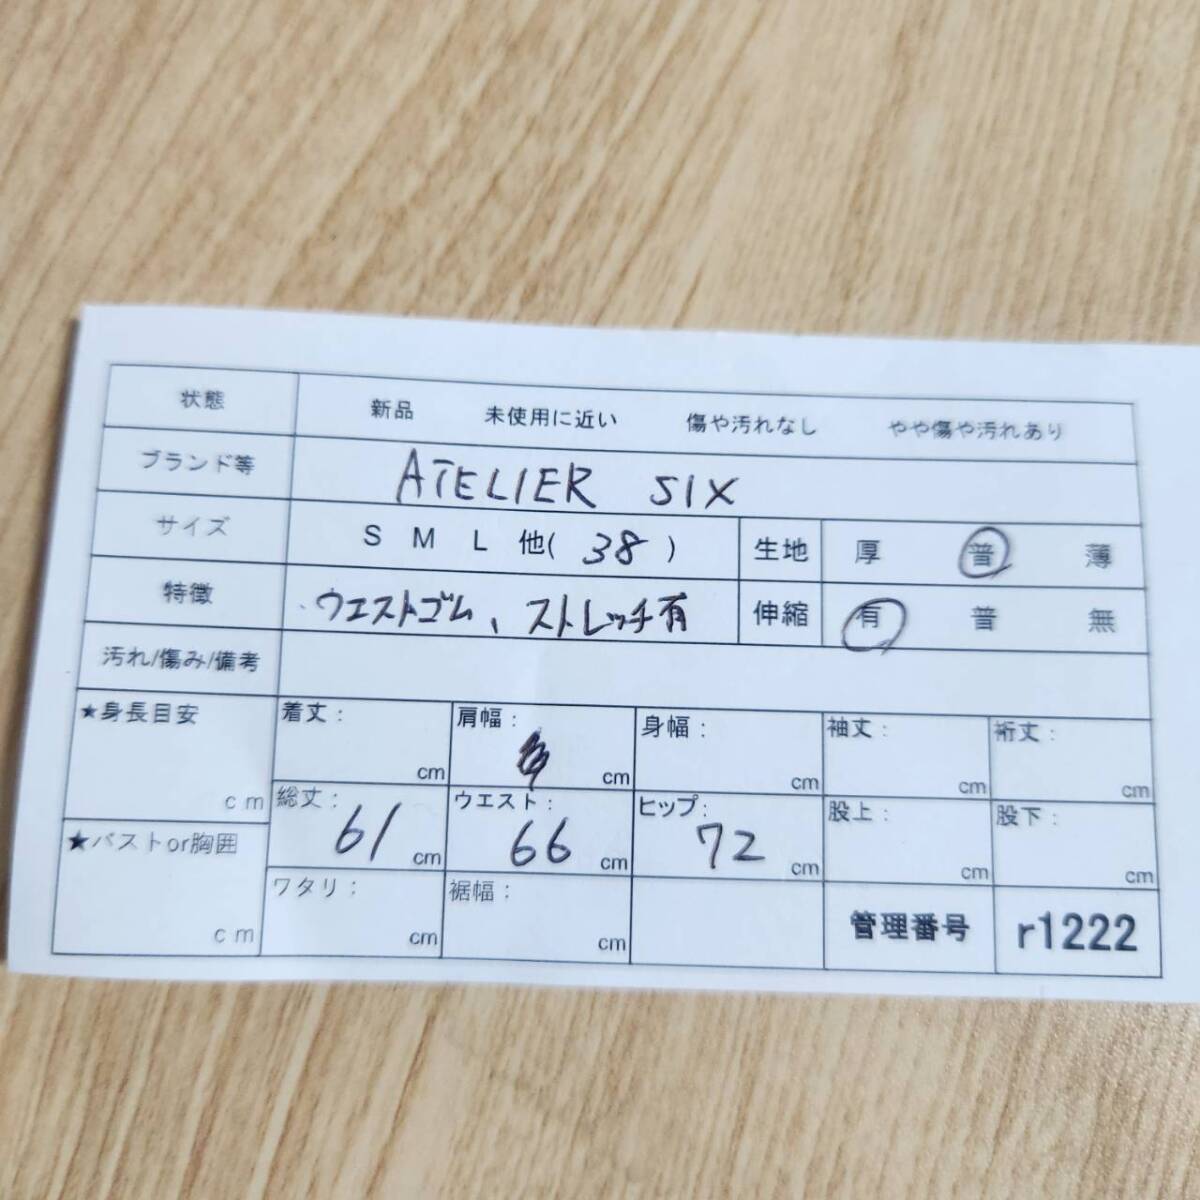 状態 新品 未使用に近い 傷や汚れなし やや傷や汚れあり
ブランド等 ATELIER SIX
サイズ S M L 他( 38 ) 生地 厚 普 薄
特徴 ウエストゴム、ストレッチ有 伸縮 有 普 無
汚れ/傷み/備考
★身長目安 cm 着丈: cm 肩幅: cm 身幅: cm 袖丈: cm 裄丈: cm
総丈: 61 cm ウエスト: 66 cm ヒップ: 72 cm 股上: cm 股下: cm
★バストor胸囲 cm ワタリ: cm 裾幅: cm 管理番号 r1222